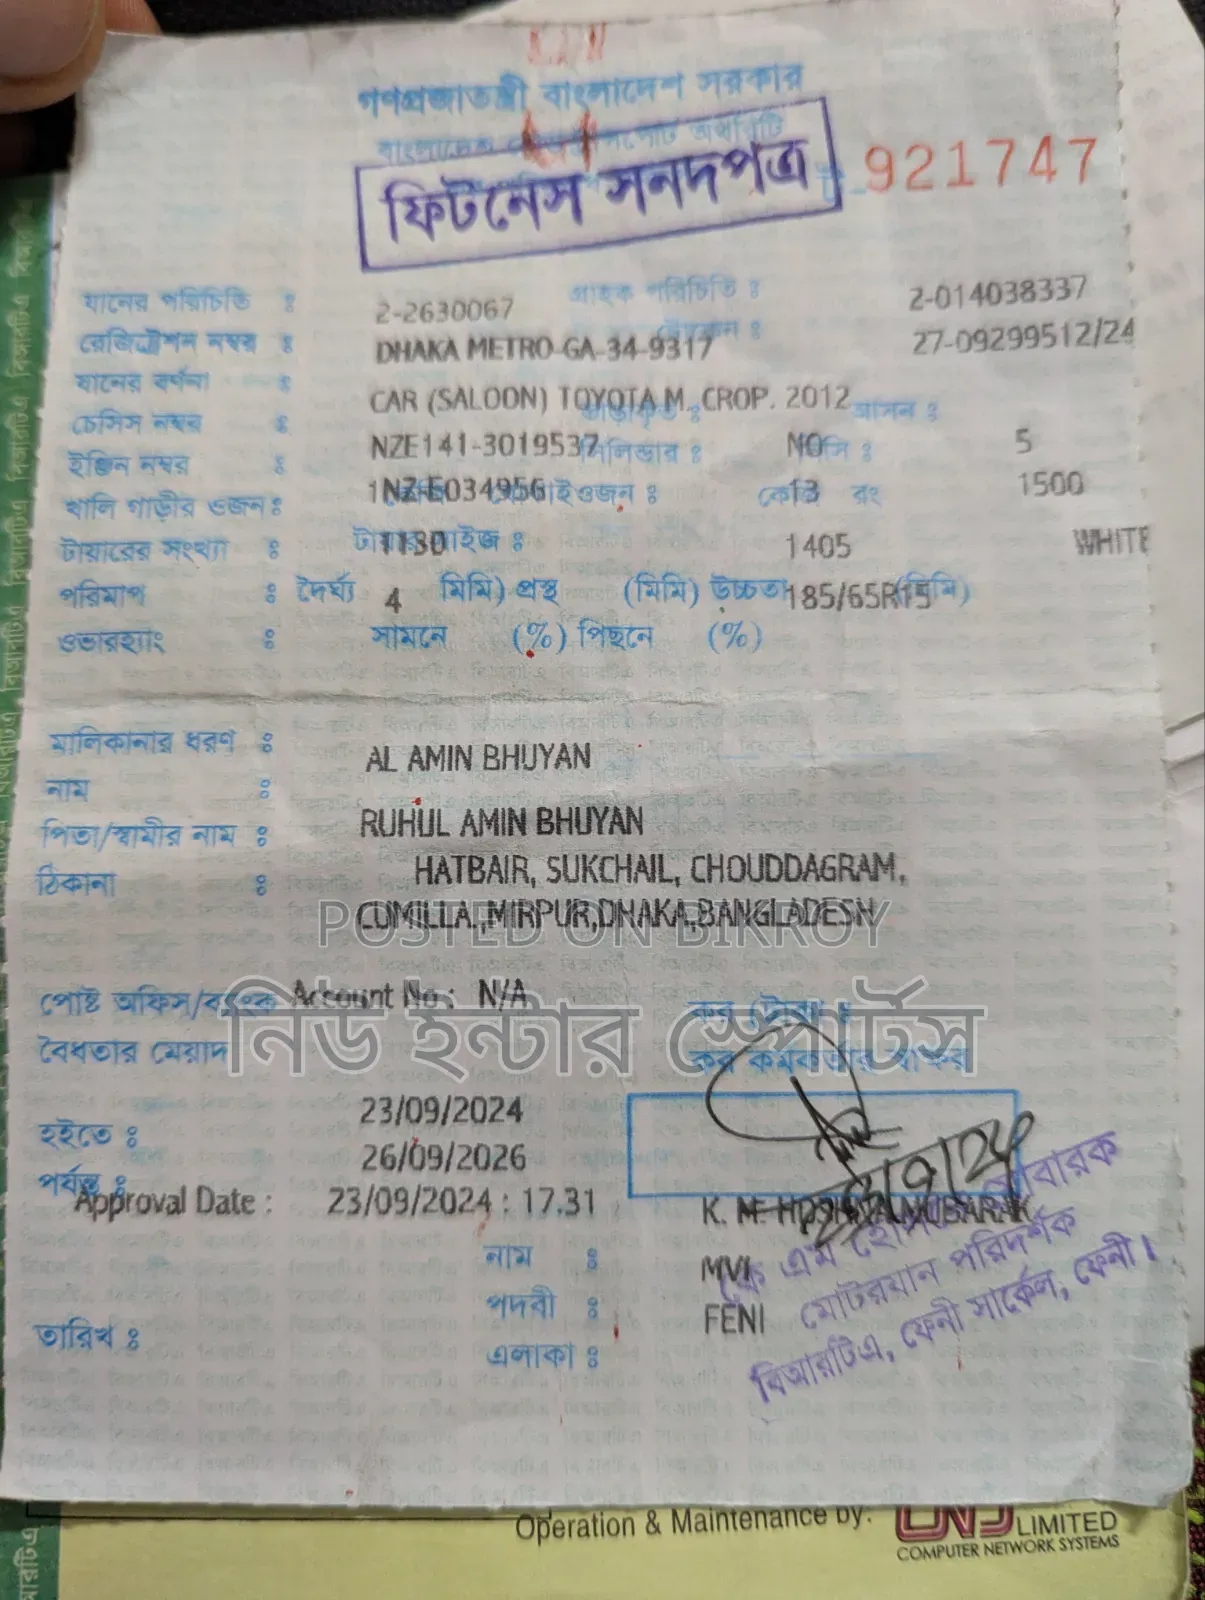 গণপ্রজাতন্ত্রী বাংলাদেশ সরকার
বাংলাদেশ রোড ট্রান্সপোর্ট অথরিটি
ফিটনেস সনদপত্র
921747
যানের পরিচিতি : 2-2630067 গ্রাহক পরিচিতি : 2-014038337
রেজিস্ট্রেশন নম্বর : DHAKA METRO-GA-34-9317 টোকেন : 27-09299512/24
যানের বর্ণনা : CAR (SALOON) TOYOTA M. CROP. 2012
চেসিস নম্বর : NZE141-3019537 ভাড়াকৃত : NO আসন : 5
ইঞ্জিন নম্বর : 1NZ-E034956 সিলিন্ডার : সিসি : 1500
খালি গাড়ীর ওজন : 1130 বোঝাই ওজন : 1405 কেজি রং WHITE
টায়ারের সংখ্যা : 4 টায়ার সাইজ : 185/65R15
পরিমাপ : দৈর্ঘ্য (মিমি) প্রস্থ (মিমি) উচ্চতা (মিমি)
ওভারহ্যাং : সামনে (%) পিছনে (%)
মালিকানার ধরণ :
AL AMIN BHUYAN
নাম :
পিতা/স্বামীর নাম : RUHUL AMIN BHUYAN
ঠিকানা : HATBAIR, SUKCHAIL, CHOUDDAGRAM,
CUMILLA.,MIRPUR,DHAKA,BANGLADESH
POSTED ON BIKROY
পোষ্ট অফিস/ব্যাংক Account No : N/A কর (টাকা) :
নিউ ইন্টার স্পোর্টস
বৈধতার মেয়াদ কর কর্মকর্তার স্বাক্ষর
হইতে : 23/09/2024
পর্যন্ত : 26/09/2026
Approval Date : 23/09/2024 : 17.31
নাম : K. M.
পদবী : MVI
এলাকা : FENI
তারিখ :
কে এম মোবারক
মোটরযান পরিদর্শক
বিআরটিএ, ফেনী সার্কেল, ফেনী।
Operation & Maintenance by:
CNS LIMITED
COMPUTER NETWORK SYSTEMS